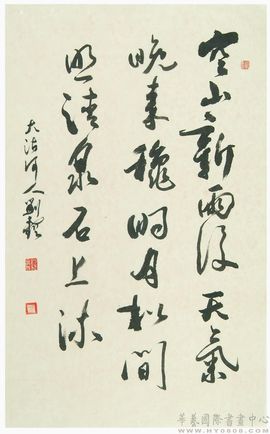 空山新雨後天氣
晚来秋明月松間
照清泉石上流
大沽河人劉
華藝國際書畫中心
WWW.HY0808.COM